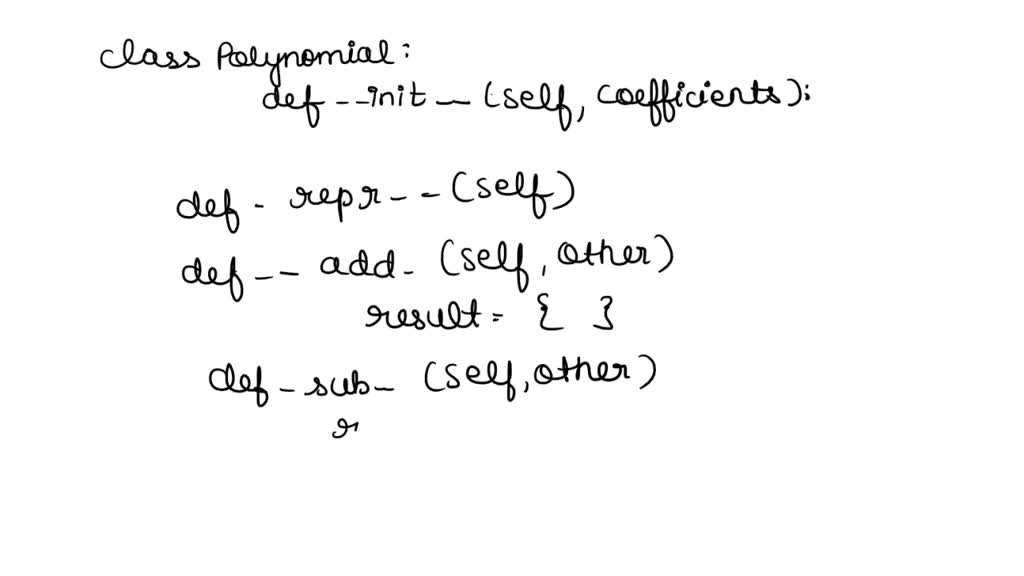 class Polynomial:
def --init-- (self, coefficients):
def - repr-- (self)
def -- add- (self, other)
result = { }
def - sub- (self, other)
r